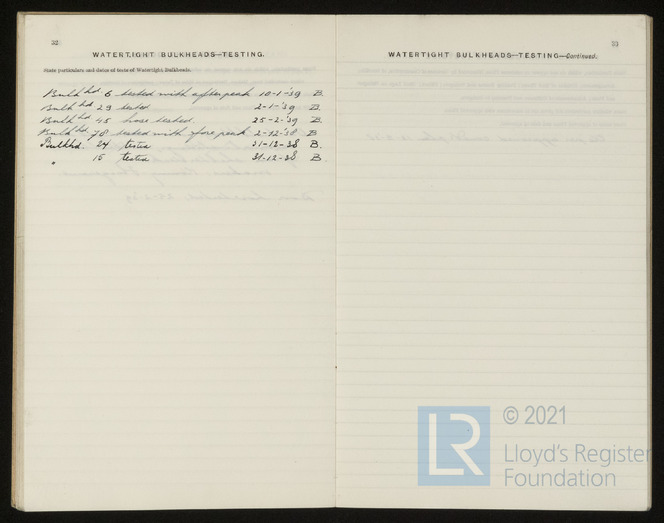 32
WATERTIGHT BULKHEADS—TESTING.
State particulars and dates of tests of Watertight Bulkheads.
Bulkhd 6 tested with afterpeak 10-1-'39 B.
Bulkhd 29 tested 2-1-'39 B.
Bulkhd 45 hose tested. 25-2-'39 B.
Bulkhd 78 tested with fore peak 2-12-'38 B
Bulkhd. 24 tested 21-12-38 B.
" 15 tested 31-12-38 B.
33
WATERTIGHT BULKHEADS—TESTING—Continued.
LR
© 2021
Lloyd's Register
Foundation